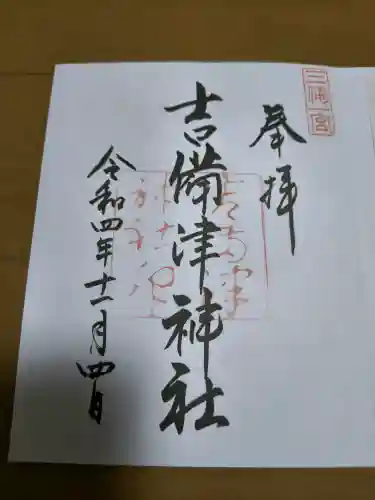 三備一宮
奉拝
吉備津神社
令和四年十一月四日